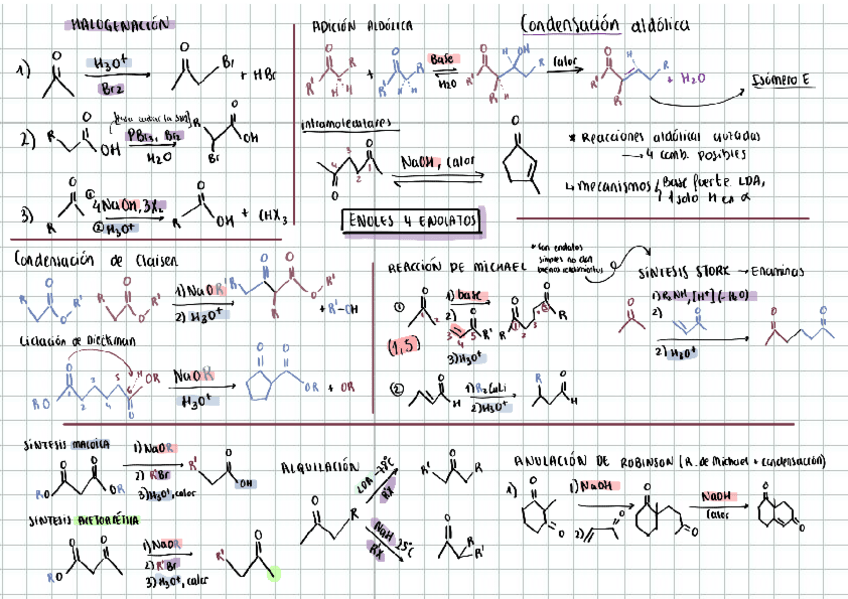 HALOGENACIÓN
1)
H3O+
Br2
O
O
Br
+ HBr
2)
R
O
OH
PBr3, Br2
H2O
R
O
OH
Br
3)
O
R
① 4NaOH, 3X2
② H3O+
O
R
OH
+ CHX3
ADICIÓN ALDÓLICA
Condensación aldólica
O
R'
H
H
+
O
R
H
H
Base
H2O
O
OH
H
R'
R
R
H
calor
O
H
R'
R
R
+ H2O
Isómero E
intramoleculares
O
O
4
3
2
1
NaOH, calor
O
* Reacciones aldólicas cruzadas
→ 4 comb. posibles
↳ mecanismos
Base fuerte LDA,
1 solo H en α
ENOLES Y ENOLATOS
Condensación de Claisen
R
O
O
R'
R
O
O
R'
1) NaOR'
2) H3O+
R
O
O
O
R'
R
+ R'-OH
Ciclación de Dieckman
O
RO
1
2
3
4
5
6
O
H
OR
NaOR
H3O+
O
O
OR
+ OR
REACCIÓN DE MICHAEL
* Con enolatos
simples no dan
buenos rendimientos
①
O
1
2
(1,5)
1) base
2)
O
3
4
5
R'
3) H3O+
O
O
R
②
O
H
1) R2CuLi
2) H3O+
R
O
H
SÍNTESIS STORK → Enaminas
O
1) R2NH, [H+] (-H2O)
2)
O
2) H3O+
O
O
SÍNTESIS MALÓICA
O
O
RO
OR
1) NaOR
2) R'Br
3) H3O+, calor
R'
O
OH
SÍNTESIS ACETOACÉTICA
O
O
RO
1) NaOR
2) R'Br
3) H3O+, calor
R'
O
ALQUILACIÓN
O
R
LDA -78°C
R'X
O
R'
R
NaH 25°C
R'X
O
R
R'
ANULACIÓN DE ROBINSON (R. de Michael + condensación)
1)
O
O
1) NaOH
2)
O
O
O
O
NaOH
calor
O
O